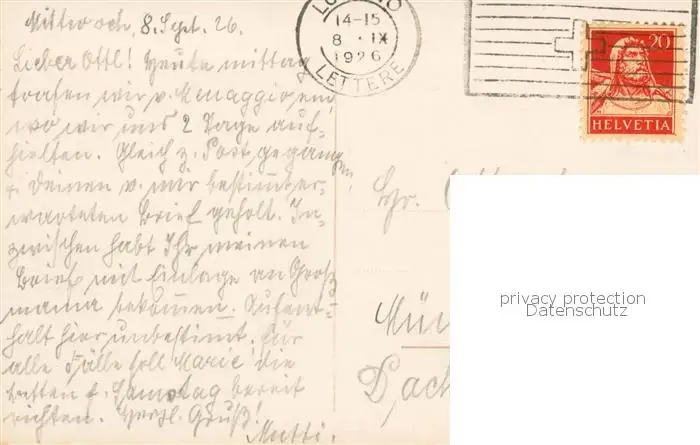 Mittwoch, 8. Sept. 26.
Lieber Ottl! Heute mittag
trafen wir v. Menaggio ein,
wo wir uns 2 Tage auf-
hielten. Gleich z. Post gegangen
u. Deinen v. mir bestimmt er-
warteten Brief geholt. In-
zwischen habt Ihr meinen
Brief mit Einlage an Groß
mama bekommen. Aufent-
halt hier unbestimmt. Für
alle Fälle soll Marie die
betten f. Samstag bereit
richten. Herzl. Gruß!
Mutti.
14-15
8 · IX
1926
LETTERE
20
HELVETIA
Hr.
Mün
Dach
privacy protection
Datenschutz